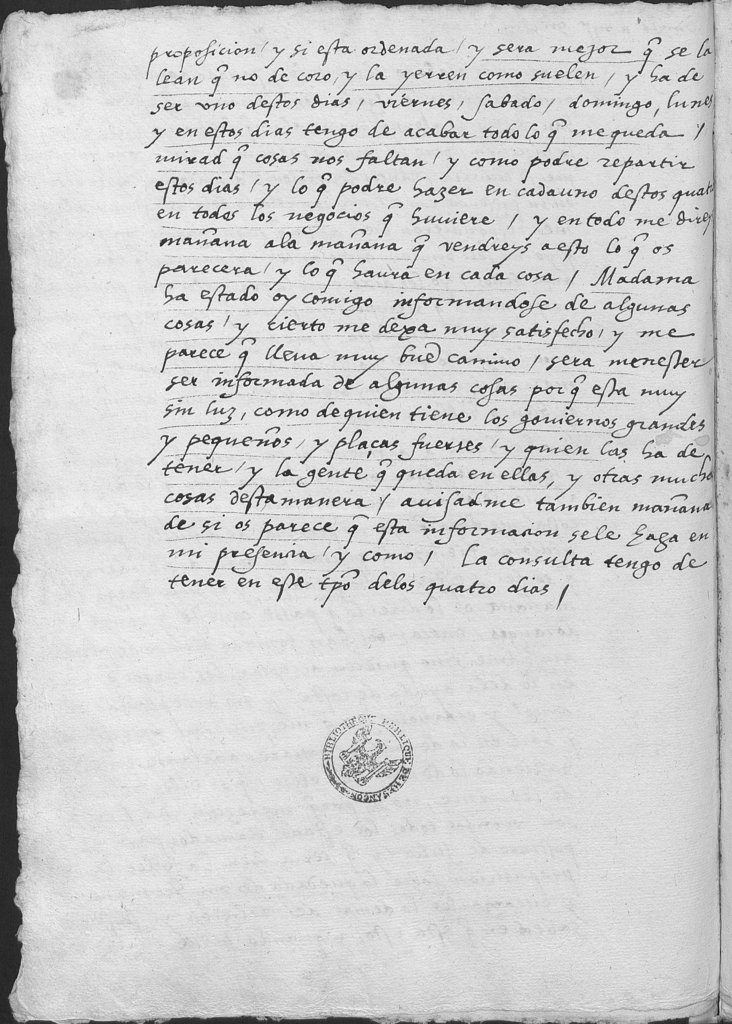 proposicion / y si esta ordenada / y sera mejor q̃ se la
lean q̃ no de coro, y la yerren como suelen, y ha de
ser vno destos dias, viernes, sabado, domingo, lunes
y en estos dias tengo de acabar todo lo q̃ me queda /
mirad q̃ cosas nos faltan / y como podre repartir
estos dias / y lo q̃ podre hazer en cada uno destos quat
en todos los negocios q̃ huuiere / y en todo me direy
mañana ala mañana q̃ vendreys a esto lo q̃ os
parecera / y lo q̃ haura en cada cosa / Madama
ha estado oy comigo informandose de algunas
cosas / y cierto me dexa muy satisfecho, y me
parece q̃ lleua muy buẽ camino / sera menester
ser informada de algunas cosas porq̃ esta muy
sin luz, como de quien tiene los gouiernos grandes
y pequeños, y plaças fuertes / y quien las ha de
tener / y la gente q̃ queda en ellas, y otras muchas
cosas desta manera / auisadme tambien mañana
de si os parece q̃ esta informacion se le haga en
mi presencia / y como / La consulta tengo de
tener en este tpõ delos quatro dias /
BIBLIOTHEQUE PUBLIQUE DE BESANÇON